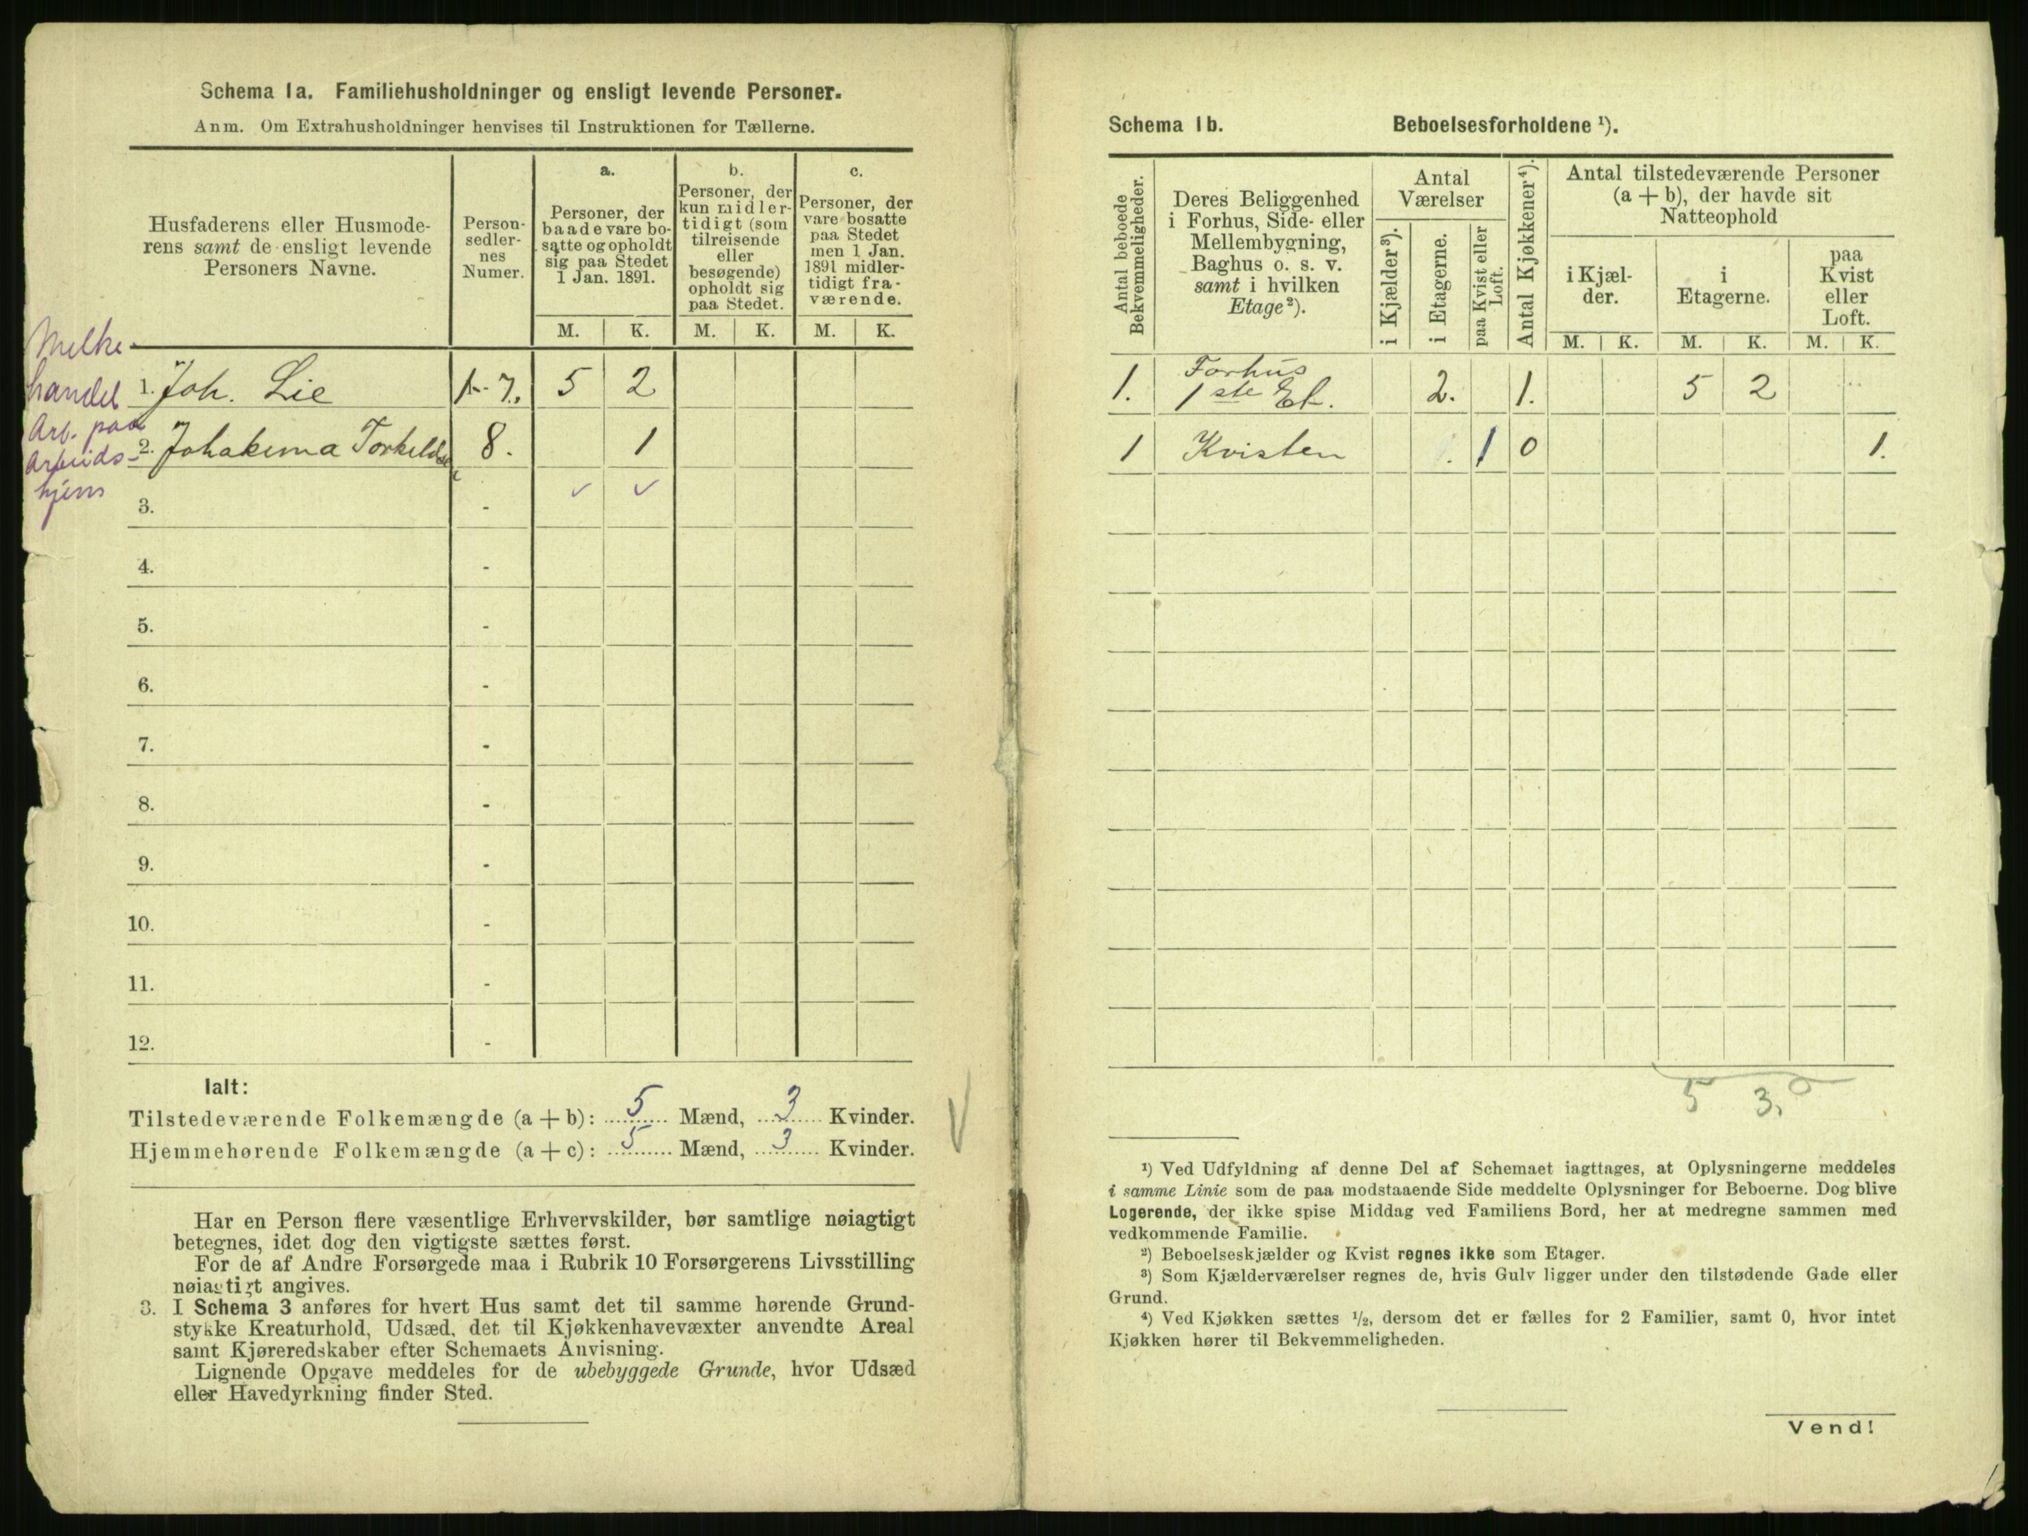 Schema 1a. Familiehusholdninger og ensligt levende Personer.
Anm. Om Extrahusholdninger henvises til Instruktionen for Tællerne.
Husfaderens eller Husmode-
rens samt de ensligt levende
Personers Navne.
Person-
sedler-
nes
Numer.
a.
Personer, der
baade vare bo-
satte og opholdt
sig paa Stedet
1 Jan. 1891.
b.
Personer, der
kun midler-
tidigt (som
tilreisende
eller
besøgende)
opholdt sig
paa Stedet.
c.
Personer, der
vare bosatte
paa Stedet
men 1 Jan.
1891 midler-
tidigt fra-
værende.
M. K. M. K. M. K.
Melke
handel
Arb. paa
Arbeids-
hjem
1. Joh. Lie 1-7. 5 2
2. Johakima Torkelds 8. 1
3. - ✓ ✓
4. -
5. -
6. -
7. -
8. -
9. -
10. -
11. -
12. -
Ialt:
Tilstedeværende Folkemængde (a + b): 5 Mænd, 3 Kvinder.
Hjemmehørende Folkemængde (a + c): 5 Mænd, 3 Kvinder.
Har en Person flere væsentlige Erhvervskilder, bør samtlige nøiagtigt
betegnes, idet dog den vigtigste sættes først.
For de af Andre Forsørgede maa i Rubrik 10 Forsørgerens Livsstilling
nøiagtigt angives.
3. I Schema 3 anføres for hvert Hus samt det til samme hørende Grund-
stykke Kreaturhold, Udsæd, det til Kjøkkenhavevæxter anvendte Areal
samt Kjøreredskaber efter Schemaets Anvisning.
Lignende Opgave meddeles for de ubebyggede Grunde, hvor Udsæd
eller Havedyrkning finder Sted.
Schema 1b. Beboelsesforholdene ¹).
Antal beboede
Bekvemmeligheder.
Deres Beliggenhed
i Forhus, Side- eller
Mellembygning,
Baghus o. s. v.
samt i hvilken
Etage²).
Antal
Værelser
i Kjælder³).
i Etagerne.
paa Kvist eller
Loft.
Antal Kjøkkener⁴).
Antal tilstedeværende Personer
(a + b), der havde sit
Natteophold
i Kjæl-
der.
i
Etagerne.
paa
Kvist
eller
Loft.
M. K. M. K. M. K.
1. Forhus
1ste Et. 2. 1. 5 2
1 Kvisten 1 0 1.
5 3.
¹) Ved Udfyldning af denne Del af Schemaet iagttages, at Oplysningerne meddeles
i samme Linie som de paa modstaaende Side meddelte Oplysninger for Beboerne. Dog blive
Logerende, der ikke spise Middag ved Familiens Bord, her at medregne sammen med
vedkommende Familie.
²) Beboelseskjælder og Kvist regnes ikke som Etager.
³) Som Kjælderværelser regnes de, hvis Gulv ligger under den tilstødende Gade eller
Grund.
⁴) Ved Kjøkken sættes ½, dersom det er fælles for 2 Familier, samt 0, hvor intet
Kjøkken hører til Bekvemmeligheden.
Vend!